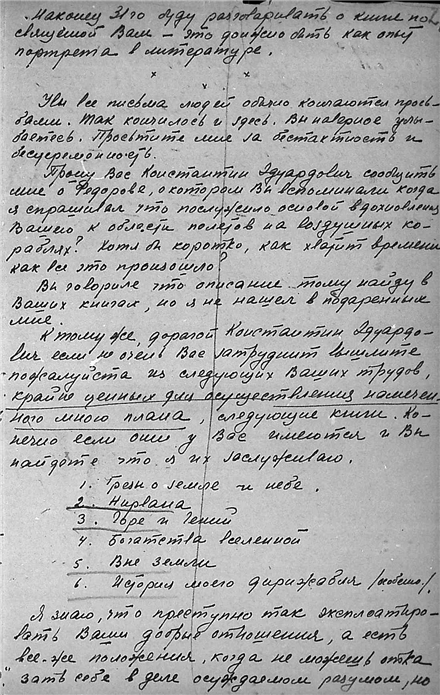 Наконец 31го буду разговаривать о книге по-
священой Вам – это должно быть как опыт
портрета в литературе.
× × ×
Увы все письма людей обычно кончаются прось-
бами. Так кончилось и здесь. Вы наверное улы-
баетесь. Простите мне за бестактность и
бесцеремонность.
Прошу Вас Константин Эдуардович сообщить
мне о Федорове, о котором Вы вспоминали когда
я спрашивал что послужило основой вдохновления
Вашего к области полетов на воздушных ко-
раблях? Хотя бы коротко, как хватит времени
как все это произошло?
Вы говорили что описание тому найду в
Ваших книгах, но я не нашел в подаренных
мне.
К тому же, дорогой Константин Эдуардо-
вич если не очень Вас затруднит вышлите
пожалуйста из следующих Ваших трудов,
крайне ценных для осуществления намечен-
ного мною плана, следующие книги. Ко-
нечно если они у Вас имеются и Вы
найдете что я их заслуживаю.
1. Грезы о земле и небе.
2. Нирвана
3. Горе и Гений
4. Богатства вселенной
5. Вне земли
6. История моего дирижабля
Я знаю, что преступно так эксплоатиро-
вать Ваши добрые отношения, а есть
все-же положения, когда не можешь отка
зать себе в деле осуждаемом разумом, но